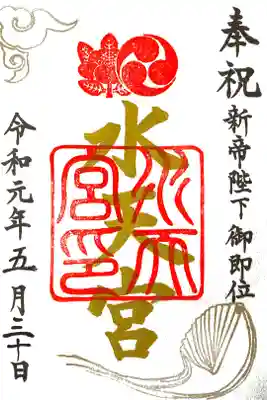 奉祝
新帝陛下御即位
水天宮
水天宮印
令和元年五月三十日